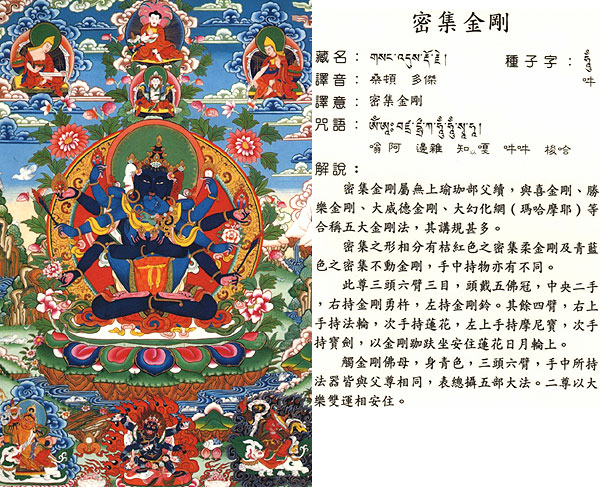 密集金剛
藏名：གསང་འདུས་རྡོ་རྗེ། 種子字：ཧཱུྃ
譯音：桑頓 多傑 吽
譯意：密集金剛
咒語：ༀ་ཨཱཿ་བཛྲ་དྷྲྀཀ་ཧཱུྃ་ཧཱུྃ་སྭཱ་ཧཱ།
嗡 阿 邊雜 知 嘎 吽吽 梭哈
解說：
密集金剛屬無上瑜珈部父續，與喜金剛、勝
樂金剛、大威德金剛、大幻化網（瑪哈摩耶）等
合稱五大金剛法，其講規甚多。
密集之形相分有桔紅色之密集柔金剛及青藍
色之密集不動金剛，手中持物亦有不同。
此尊三頭六臂三目，頭戴五佛冠，中央二手
，右持金剛勇杵，左持金剛鈴。其餘四臂，右上
手持法輪，次手持蓮花，左上手持摩尼寶，次手
持寶劍，以金剛珈趺坐安住蓮花日月輪上。
觸金剛佛母，身青色，三頭六臂，手中所持
法器皆與父尊相同，表總攝五部大法。二尊以大
樂雙運相安住。